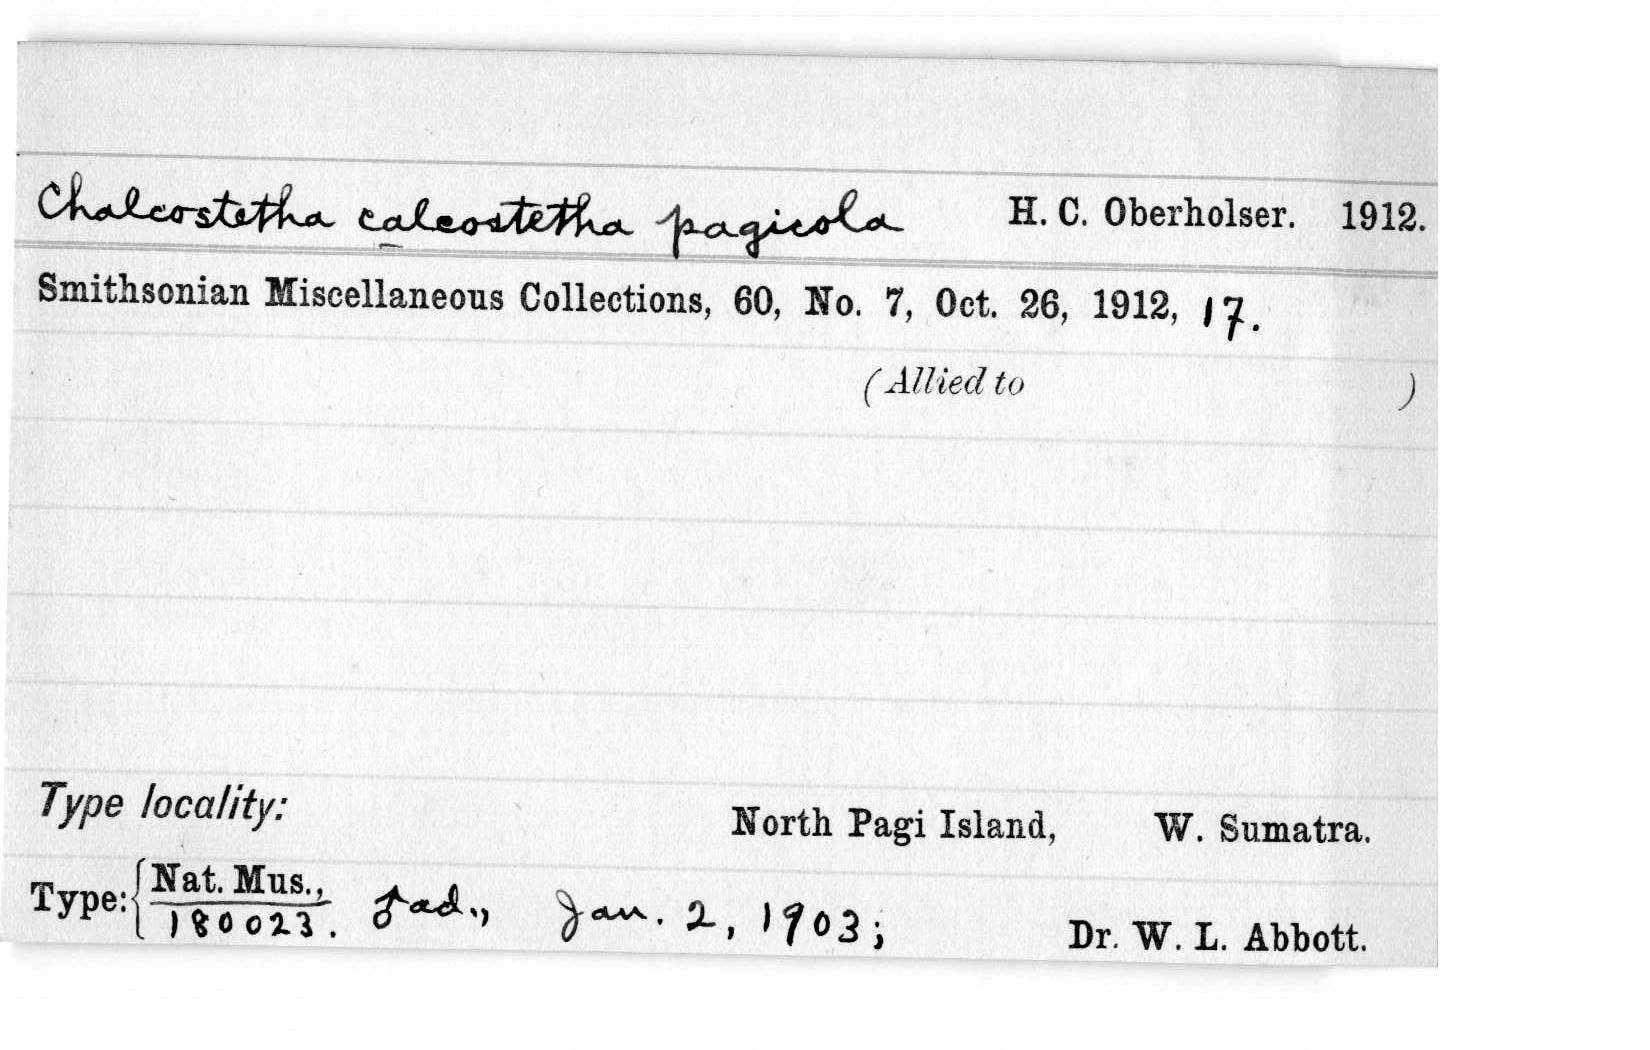 Chalcostetha calcostetha pagicola H. C. Oberholser. 1912.
Smithsonian Miscellaneous Collections, 60, No. 7, Oct. 26, 1912, 17.
(Allied to )
Type locality: North Pagi Island, W. Sumatra.
Type: { Nat. Mus., 180023. ♂ ad., Jan. 2, 1903; Dr. W. L. Abbott.